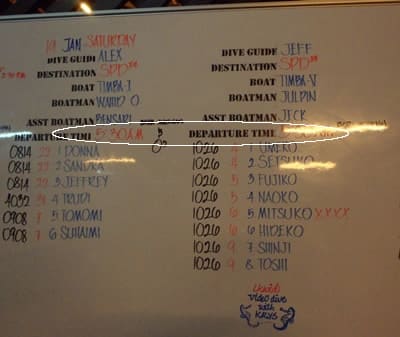 19 JAN SATURDAY
DIVE GUIDE ALEX
DESTINATION SPD
BOAT TIMBA-I
BOATMAN
ASST BOATMAN BANSARI
DEPARTURE TIME 5:30AM
0814 22 1 DONNA
0814 22 2 SANDRA
0814 22 3 JEFFREY
4032 4 TRUDI
0908 5 TOMOMI
0908 7 6 SUHAIMI
DIVE GUIDE JEFF
DESTINATION SPD
BOAT TIMBA-V
BOATMAN JULPIN
ASST BOATMAN JECK
DEPARTURE TIME
1026 4 1 UMEKO
1026 4 2 SETSUKO
1026 3 FUJIKO
1026 5 4 NAOKO
1026 6 5 MITSUKO XXXX
1026 6 6 HIDEKO
1026 9 7 SHINJI
1026 9 8 TOSHI
VIDEO dive
with
KRYS